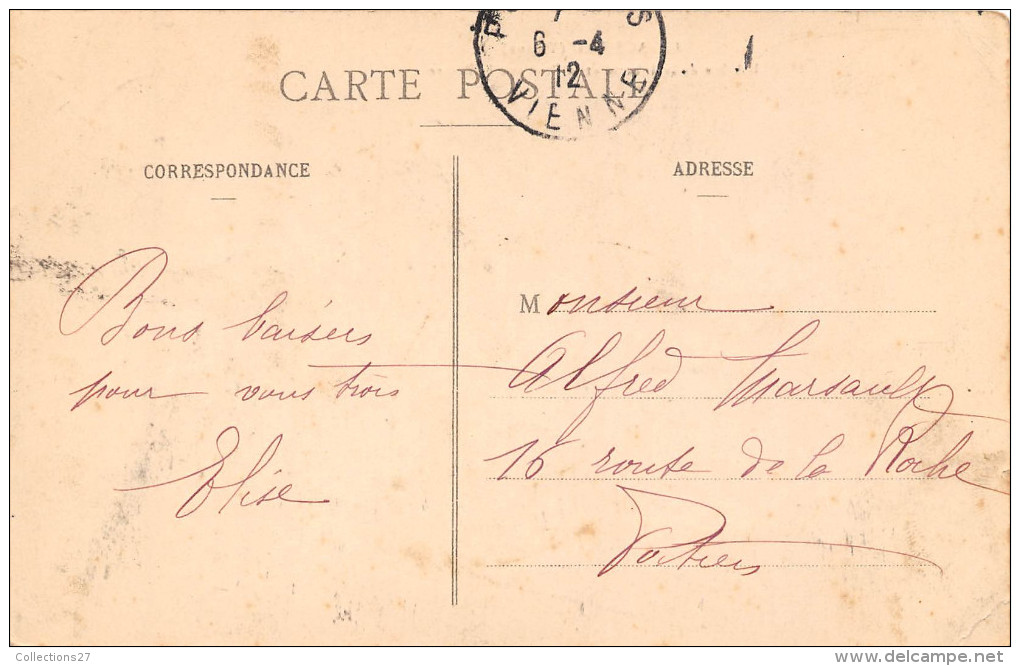 CARTE POSTALE
6 -4
12
VIENNE
CORRESPONDANCE
ADRESSE
Bons baisers
pour vous trois
Elise
Monsieur
Alfred Marsault
16 route de la Roche
Poitiers
Collections27
delcampe.net